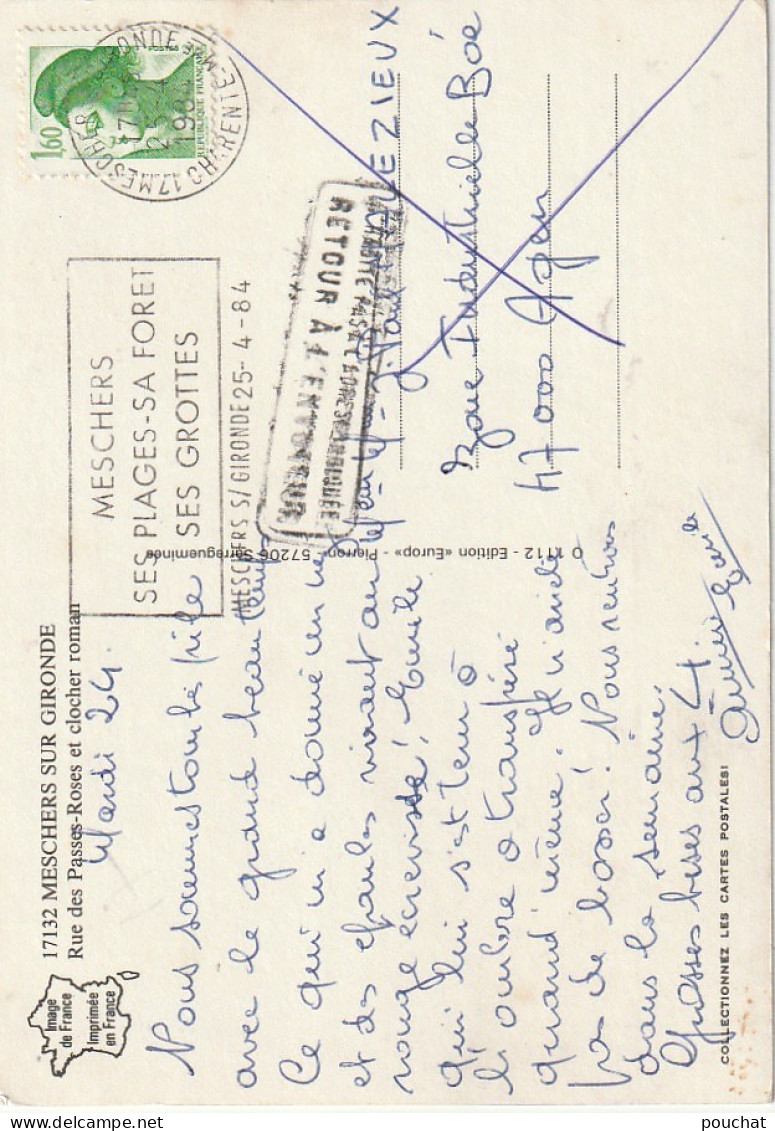 17132 MESCHERS SUR GIRONDE
Rue des Passes-Roses et clocher roman
Image
de France
Imprimée
en France
Mardi 24.
Nous sommes tombés pile
avec le grand beau temps
Ce qui m'a donné un nez
et des épaules virant au
rouge écrevisse! Emile
qui lui s'est tenu à
l'ombre a transpiré
quand même. Je n'ai de
pas de bosser! Nous rentrons
dans la semaine.
Grosses bises aux 4
Emile
COLLECTIONNEZ LES CARTES POSTALES!
O 1112 - Edition «Europ» - Pierron - 57206 Sarreguemines
1,60
POSTES
REPUBLIQUE FRANÇAISE
17 MESCHERS S/GIRONDE
CHARENTE MME
25-4
1984
MESCHERS
SES PLAGES-SA FORET
SES GROTTES
MESCHERS S/GIRONDE 25-4-84
N'HABITE PAS A L'ADRESSE INDIQUÉE
RETOUR À L'ENVOYEUR
Zone Industrielle Boé
47000 Agen
pouchat